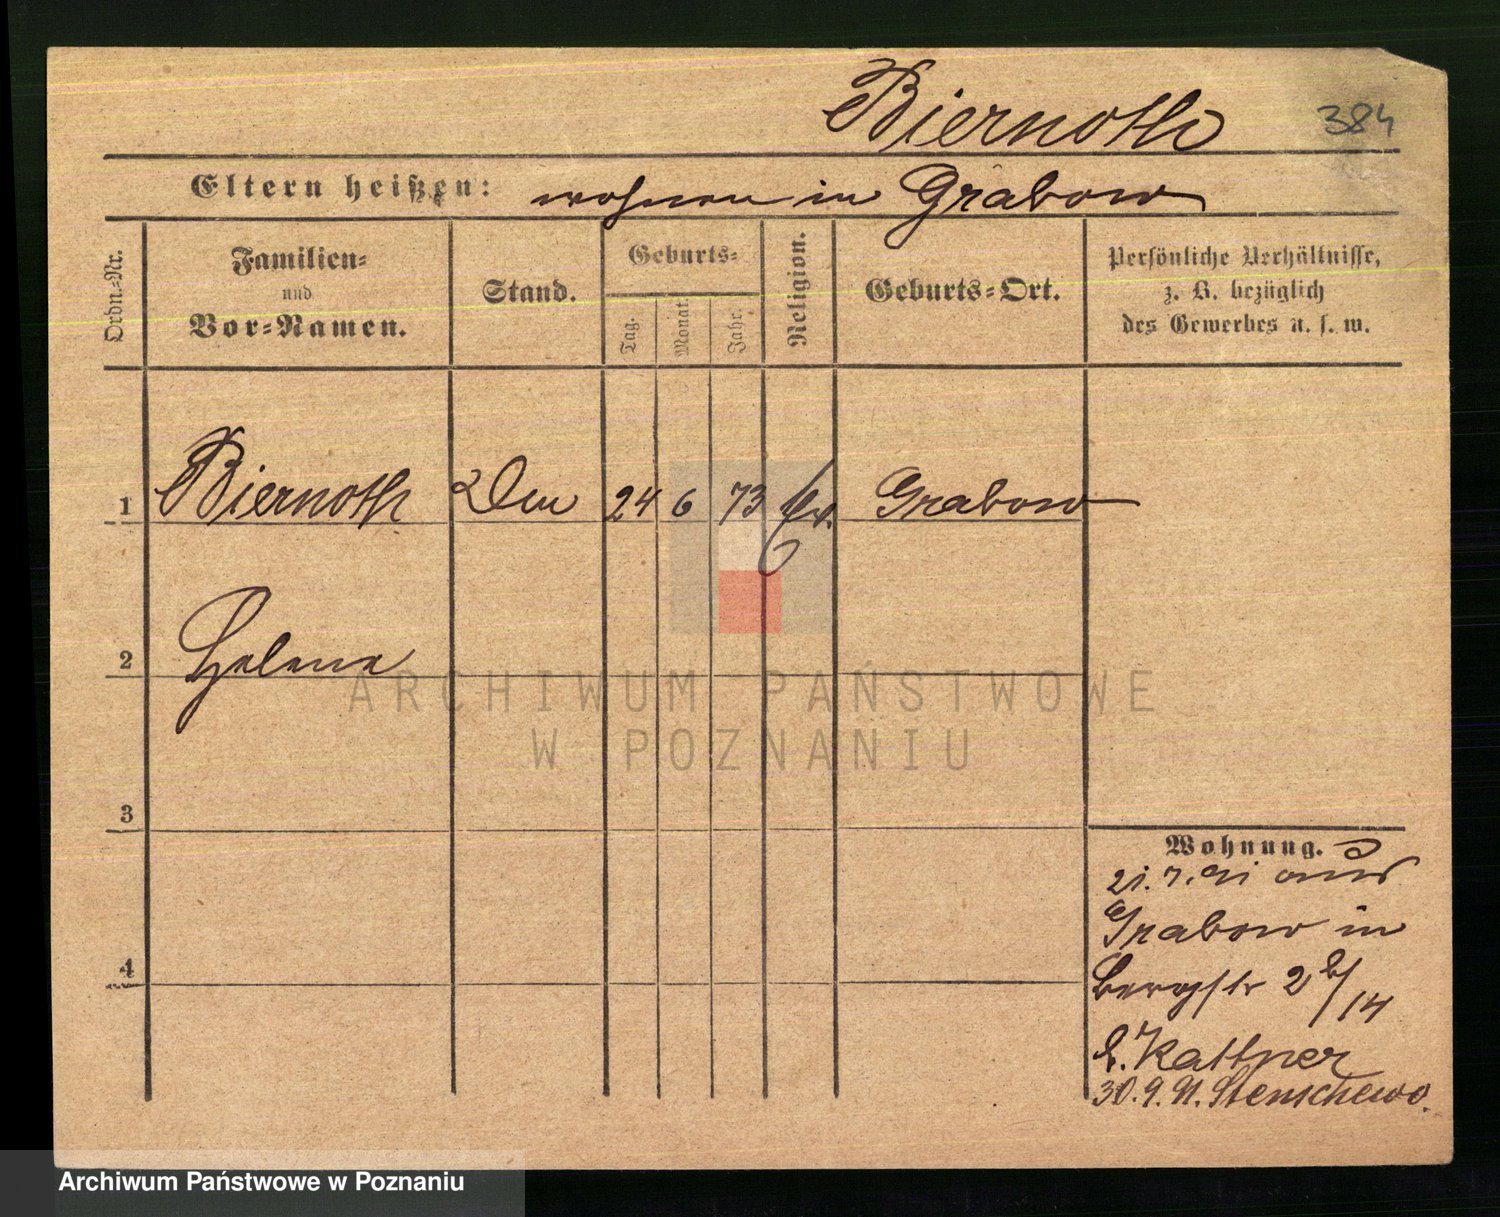 Biernoth
384
Eltern heißen: wohnen in Grabow
Ordn.-Nr.
Familien-
und
Vor-Namen.
Stand.
Geburts-
Tag.
Monat.
Jahr.
Religion.
Geburts-Ort.
Persönliche Verhältnisse,
z. B. bezüglich
des Gewerbes u. s. w.
1 Biernoth 24 6 73 Ev. Grabow
2 Helene
3
4
Wohnung.
21. 7. 91 aus
Grabow in
Bergstr 2 b/14
b. Kattner
30. 9. 91. Stenschewo.
ARCHIWUM PAŃSTWOWE
W POZNANIU
Archiwum Państwowe w Poznaniu